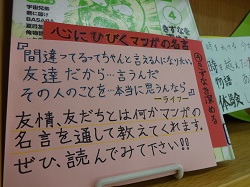 心にひびくマンガの名言
『間違ってるってちゃんと言える人になりたい。
友達だから…言うんだ
その人のことを本当に思うんなら』
ーライフー
友情、友だちとは何かマンガの
名言を通して教えてくれます。
ぜひ、読んでみて下さい!!
④きずなを深める
物語
体験